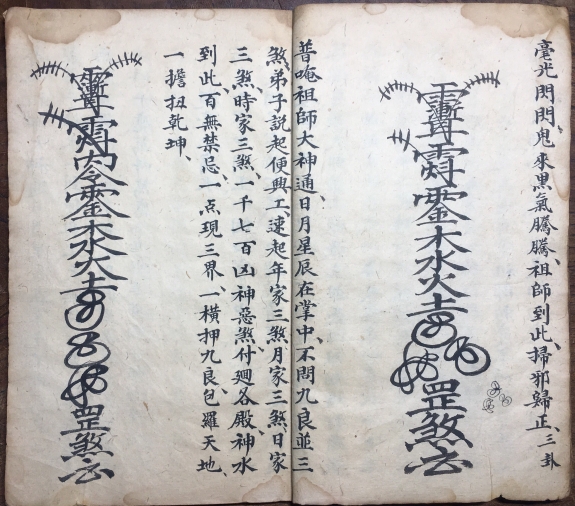 毫光閃閃、鬼來黑氣騰騰、祖師到此、掃邪歸正、三卦
金木水火土
罡煞
普唵祖師大神通、日月星辰在掌中、不問九良並三
煞、弟子說起便興工、速起年家三煞、月家三煞、日家
三煞、時家三煞、一千七百凶神惡煞、付廻各殿、神水
到此、百無禁忌、一点現三界、一橫押九良、包羅天地、
一擔扭乾坤、
金木水火土
罡煞